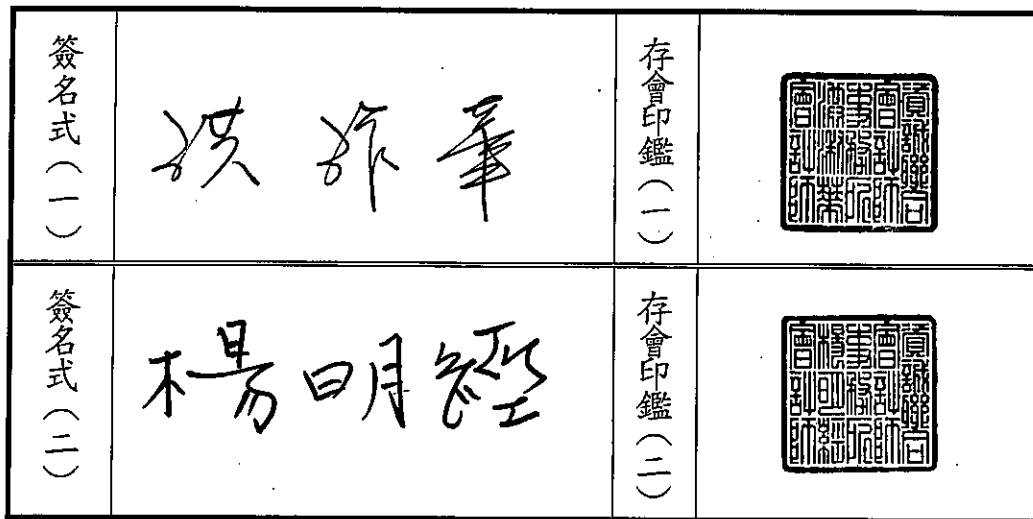 簽名式(一)
洪淑華
存會印鑑(一)
資誠聯合
會計師
事務所
洪淑華
會計師
簽名式(二)
楊明經
存會印鑑(二)
資誠聯合
會計師
事務所
楊明經
會計師